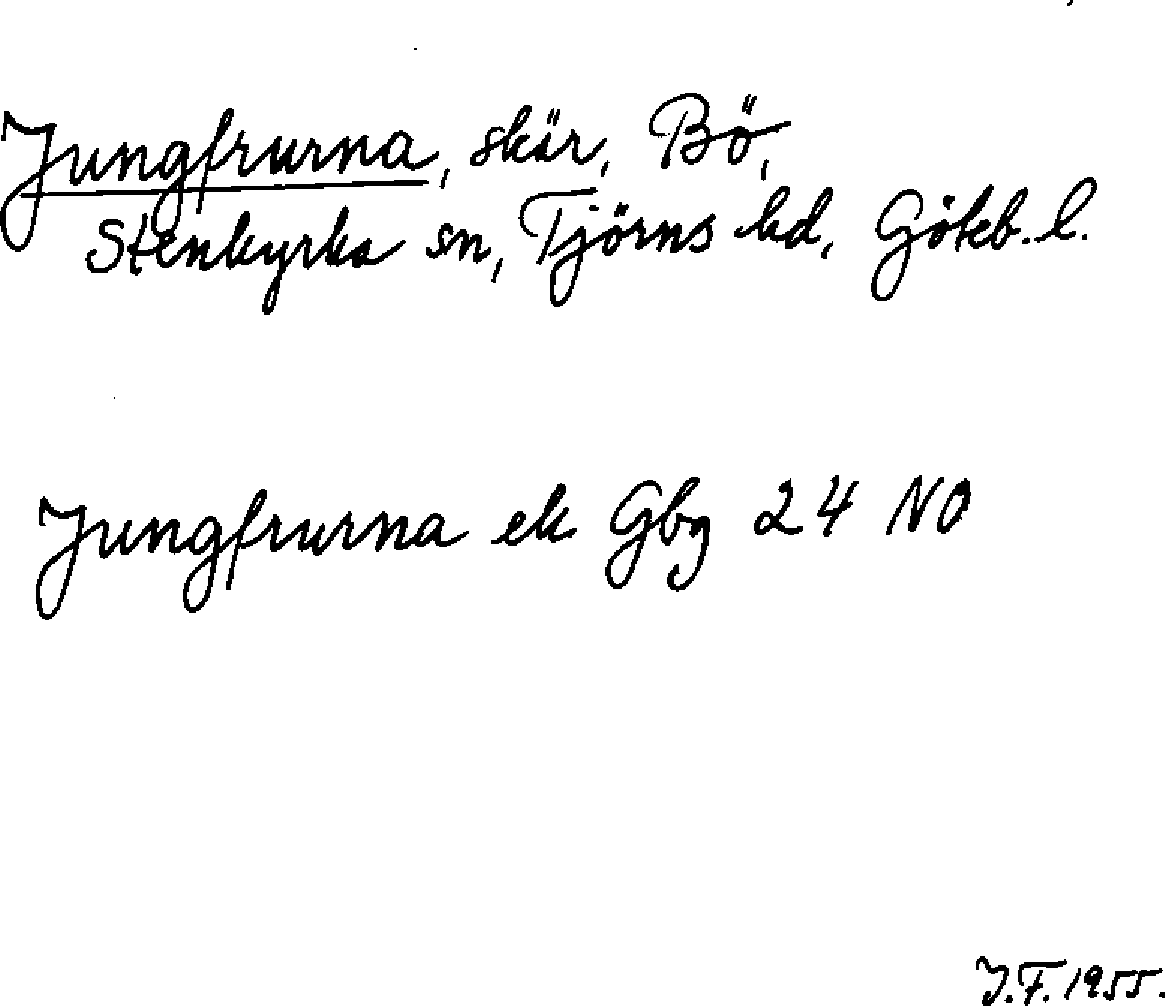 Jungfrurna, skär, Bö,
Stenkyrka sn, Tjörns hd, Göteb. l.
Jungfrurna ek Gbg 24 NO
J.F. 1955.